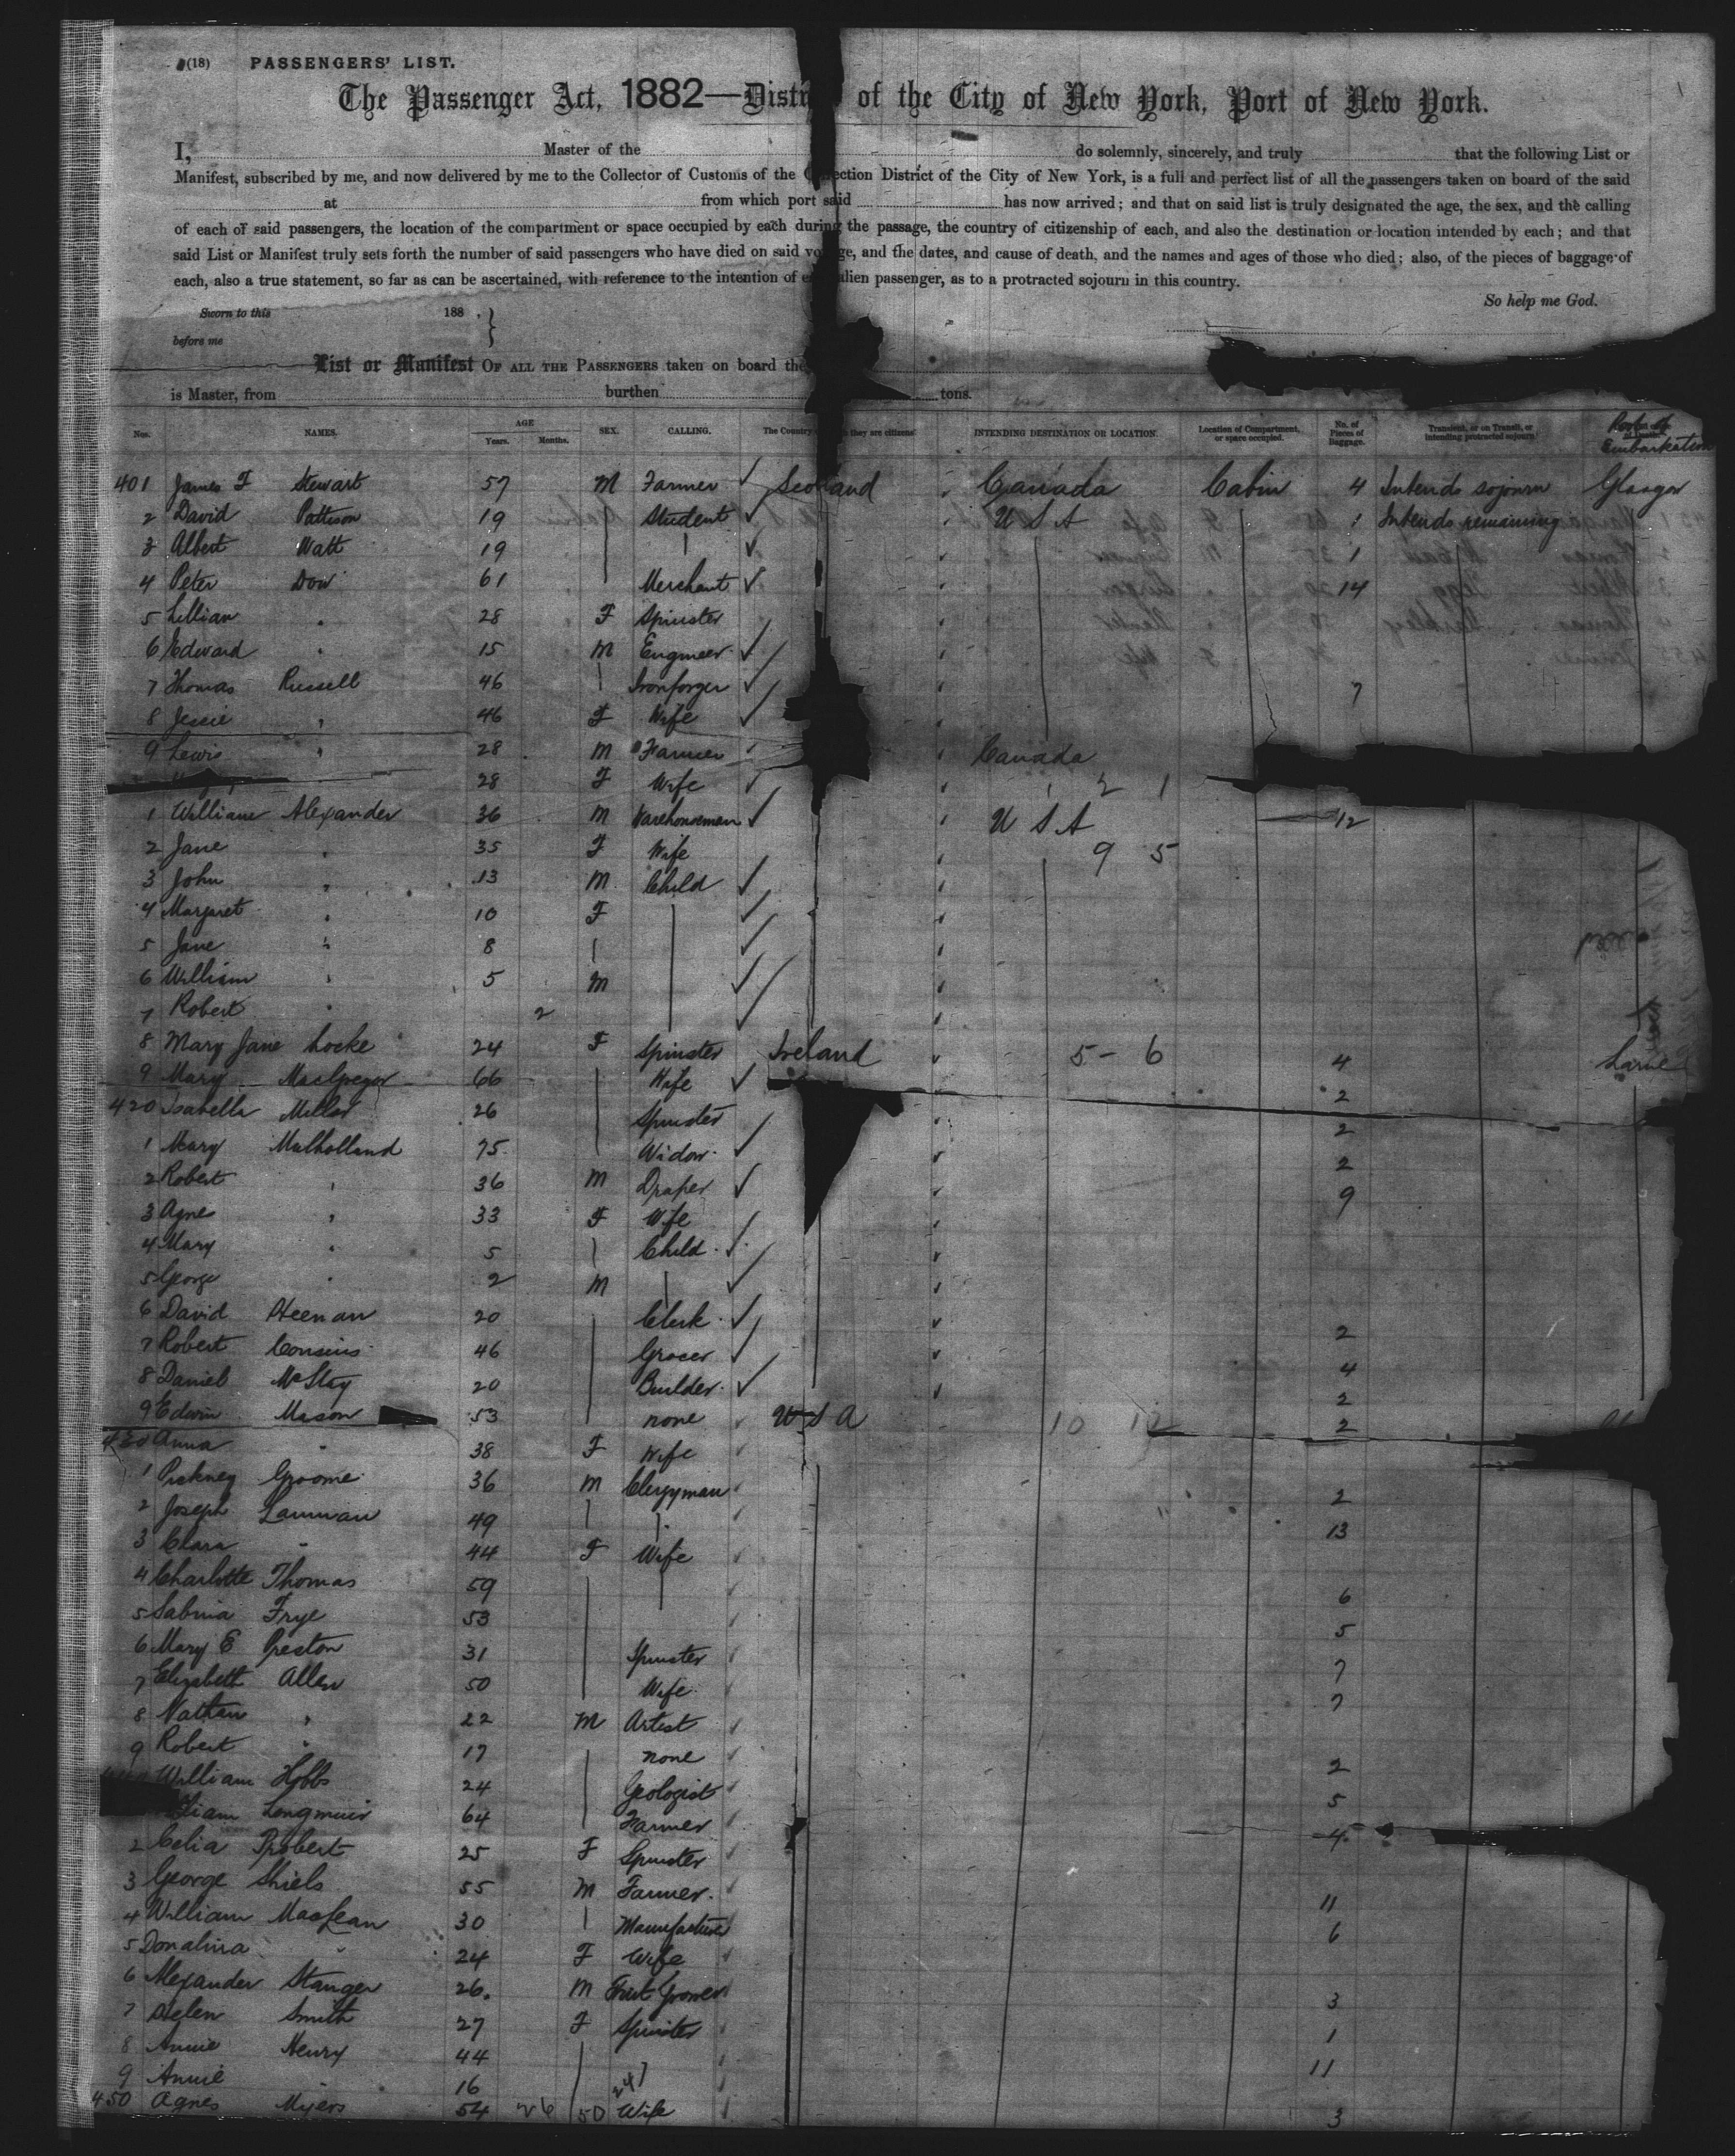 (18) PASSENGERS' LIST.
The Passenger Act, 1882—District of the City of New York, Port of New York.
I, Master of the do solemnly, sincerely, and truly that the following List or
Manifest, subscribed by me, and now delivered by me to the Collector of Customs of the Collection District of the City of New York, is a full and perfect list of all the passengers taken on board of the said
at from which port said has now arrived; and that on said list is truly designated the age, the sex, and the calling
of each of said passengers, the location of the compartment or space occupied by each during the passage, the country of citizenship of each, and also the destination or location intended by each; and that
said List or Manifest truly sets forth the number of said passengers who have died on said voyage, and the dates, and cause of death, and the names and ages of those who died; also, of the pieces of baggage of
each, also a true statement, so far as can be ascertained, with reference to the intention of each alien passenger, as to a protracted sojourn in this country.
So help me God.
Sworn to this 188 .
before me
List or Manifest OF ALL THE PASSENGERS taken on board the
is Master, from burthen tons.
Nos. NAMES. AGE Years. Months. SEX. CALLING. The Country they are citizens. INTENDING DESTINATION OR LOCATION. Location of Compartment, or space occupied. No. of Pieces of Baggage. Transient, or on Transit, or intending protracted sojourn. Embarkation
401 James F Stewart 57 M Farmer Scotland Canada Cabin 4 Intends sojourn Glasgow
2 David Pattison 19 Student U S A 1 Intends remaining
3 Albert Watt 19 1
4 Peter Dow 61 Merchant 14
5 Lillian " 28 F Spinster
6 Edward " 15 M Engineer
7 Thomas Russell 46 Ironforger 7
8 Jessie " 46 F Wife
9 Lewis " 28 M Farmer Canada
28 F Wife 2 1
1 William Alexander 36 M Warehouseman U S A 12
2 Jane " 35 F Wife 9 5
3 John " 13 M Child
4 Margaret " 10 F
5 Jane " 8
6 William " 5 M
7 Robert " 2
8 Mary Jane Locke 24 F Spinster Ireland 5-6 4 Larne
9 Mary MacGregor 66 Wife 2
420 Isabella Millar 26 Spinster 2
1 Mary Mulholland 75 Widow 2
2 Robert " 36 M Draper 9
3 Agnes " 33 F Wife
4 Mary " 5 Child
5 George " 2 M
6 David Heenan 20 Clerk 2
7 Robert Cousins 46 Grocer 4
8 Daniel McStay 20 Builder 2
9 Edwin Mason 53 none U S A 10 12 2
430 Anna " 38 F Wife
1 Pickney Groome 36 M Clergyman 2
2 Joseph Lanman 49 13
3 Clara " 44 F Wife
4 Charlotte Thomas 59 6
5 Sabina Frye 53 5
6 Mary E Preston 31 Spinster 7
7 Elizabeth Allen 50 Wife 7
8 Nathan " 22 M Artist
9 Robert " 17 none 2
William Hobbs 24 Geologist 5
Longmuir 64 Farmer 4
2 Celia Probert 25 F Spinster
3 George Shiels 55 M Farmer 11
4 William MacLean 30 Manufacturer 6
5 Donalina " 24 F Wife
6 Alexander Stanger 26 M Fruit Grower 3
7 Helen Smith 27 F Spinster 1
8 Annie Henry 44 11
9 Annie " 16 24
450 Agnes Myers 54 26 50 Wife 3